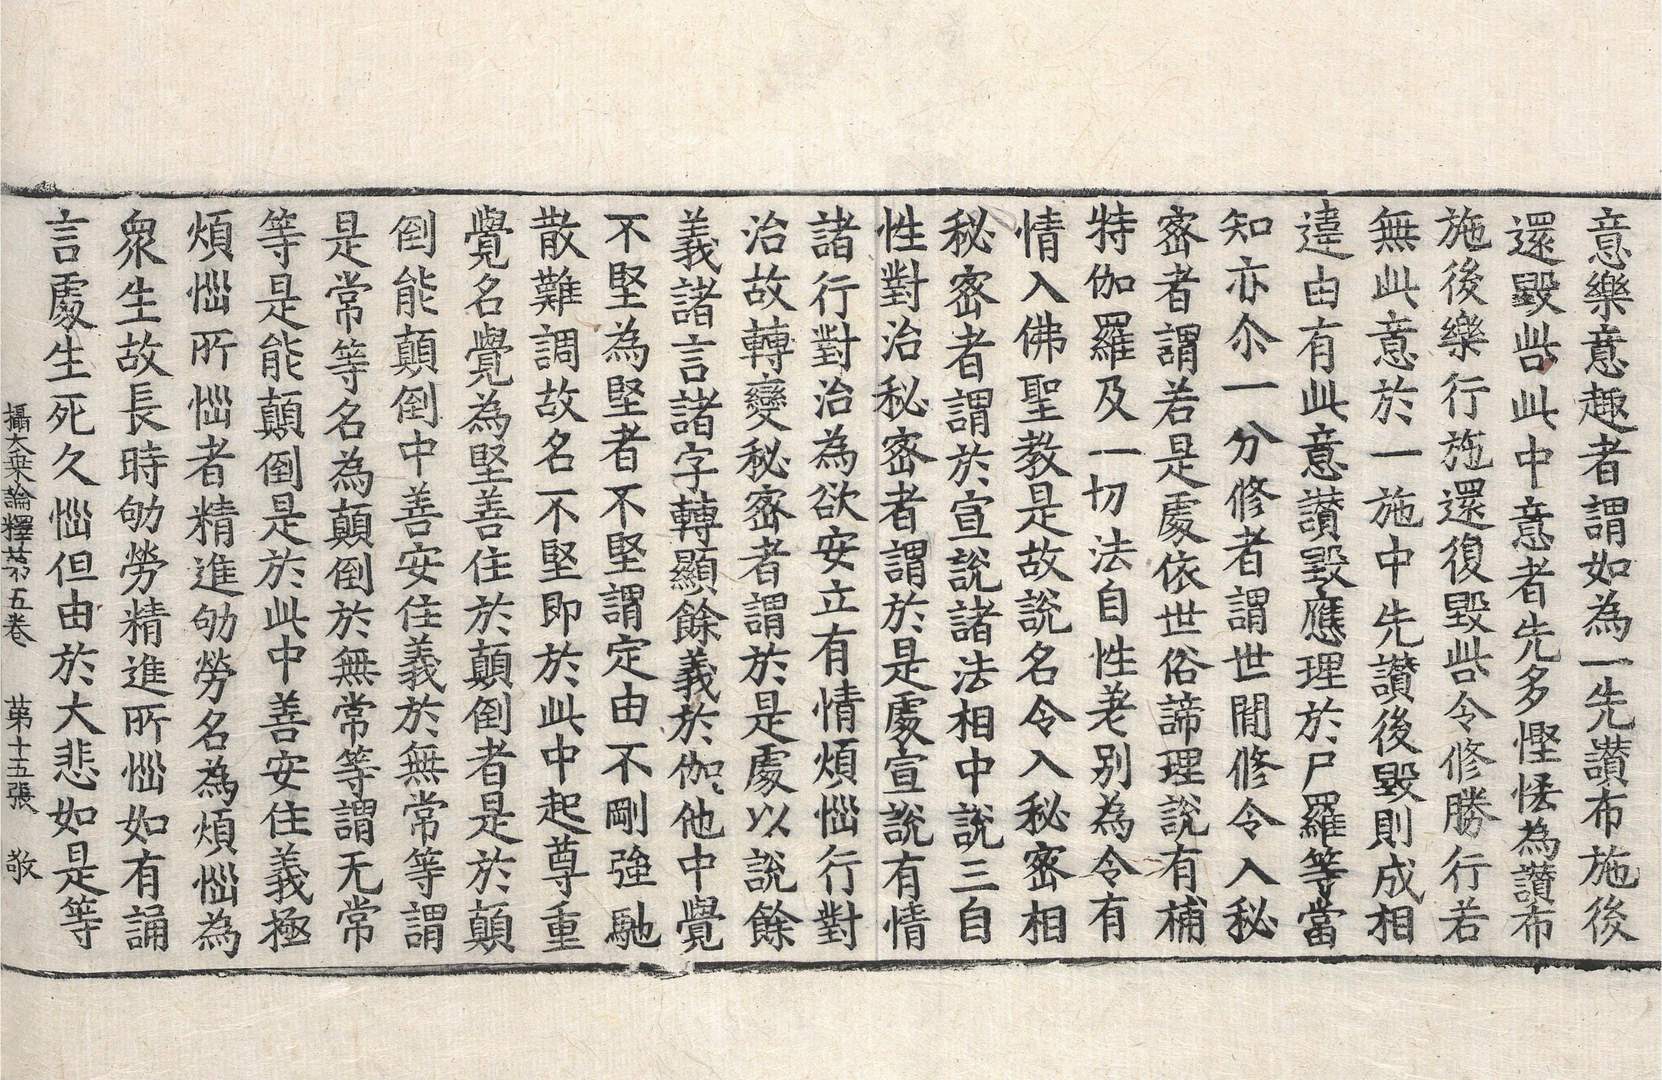 意樂意趣者謂如為一先讃布施後
還毀呰此中意者先多慳悋為讃布
施後樂行施還復毀呰令修勝行若
無此意於一施中先讃後毀則成相
違由有此意讃毀應理於尸羅等當
知亦尒一分修者謂世間修令入秘
密者謂若是處依世俗諦理說有補
特伽羅及一切法自性差別為令有
情入佛聖教是故說名令入秘密相
秘密者謂於宣說諸法相中說三自
性對治秘密者謂於是處宣說有情
諸行對治為欲安立有情煩惱行對
治故轉變秘密者謂於是處以說餘
義諸言諸字轉顯餘義於伽他中覺
不堅為堅者不堅謂定由不剛強馳
散難調故名不堅即於此中起尊重
覺名覺為堅善住於顛倒者是於顛
倒能顛倒中善安住義於無常等謂
是常等名為顛倒於無常等謂无常
等是能顛倒是於此中善安住義極
煩惱所惱者精進劬勞名為煩惱為
衆生故長時劬勞精進所惱如有誦
言處生死久惱但由於大悲如是等
攝大乗論釋苐五卷 苐十五張 敬